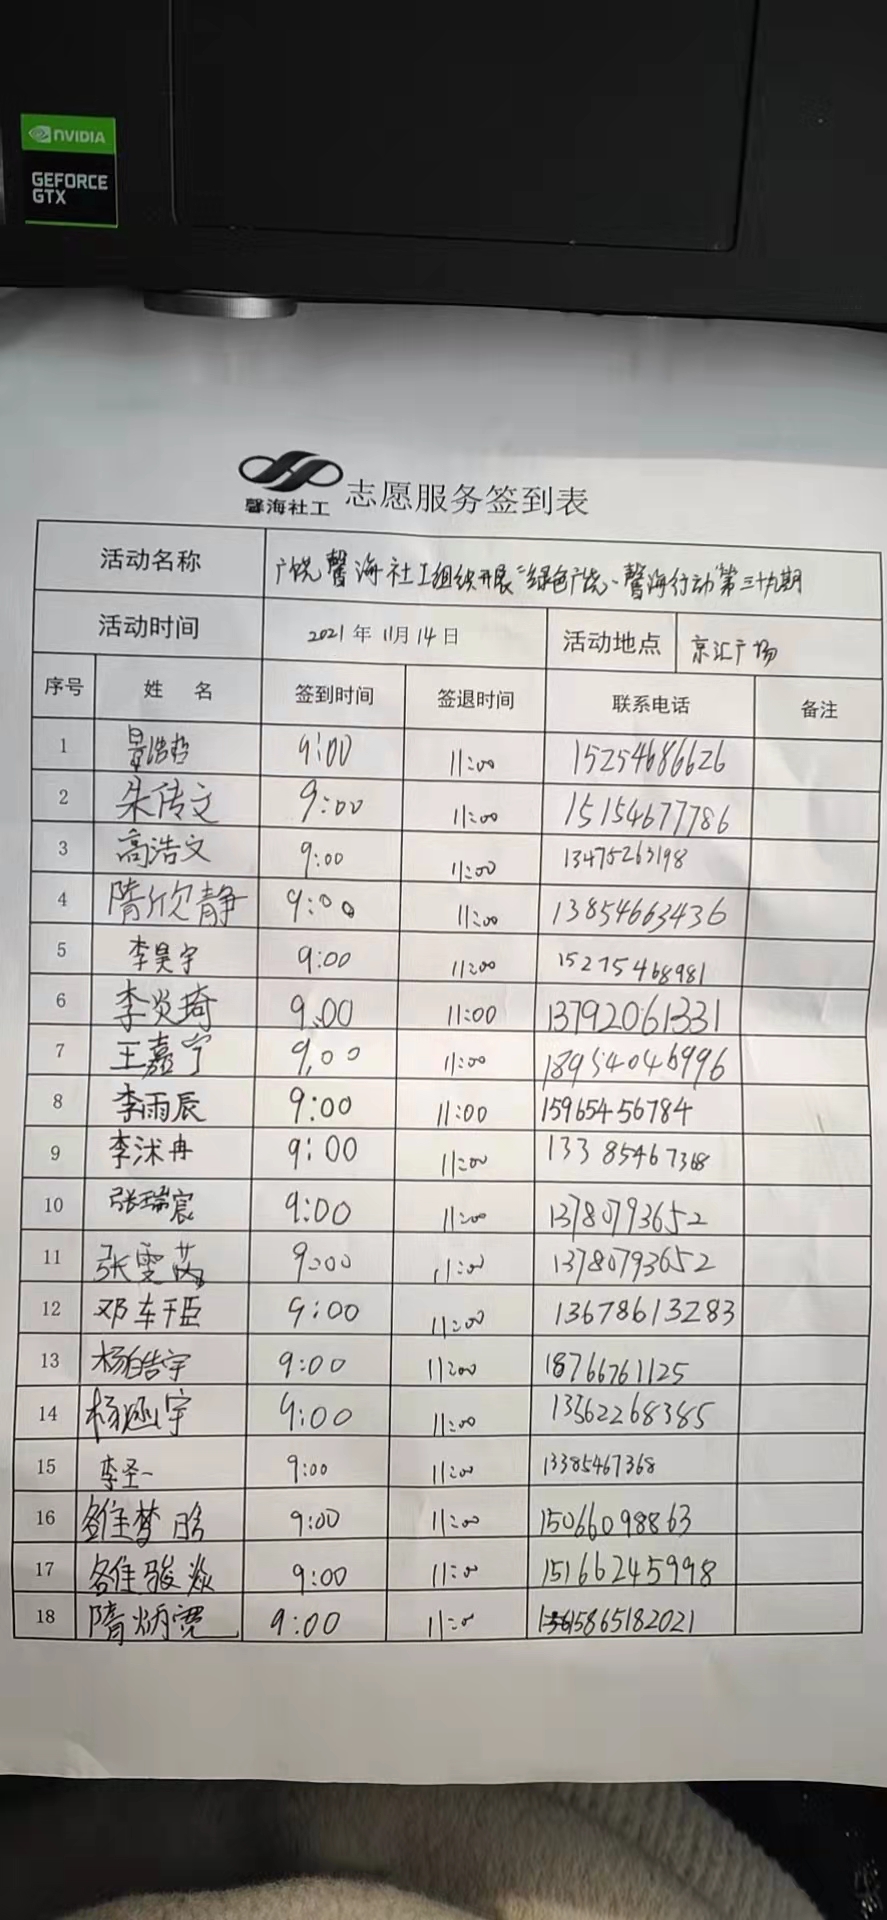 NVIDIA
GEFORCE
GTX
馨海社工 志愿服务签到表
活动名称 广饶馨海社工组织开展“绿色广饶、馨海行动”第三十九期
活动时间 2021年11月14日 活动地点 京汇广场
序号 姓名 签到时间 签退时间 联系电话 备注
1 景浩哲 9:00 11:00 15254686626
2 朱传文 9:00 11:00 15154677786
3 高浩文 9:00 11:00 13475263198
4 隋欣静 9:00 11:00 13854663436
5 李昊宇 9:00 11:00 15275468981
6 李炎琦 9:00 11:00 13792061331
7 王嘉宁 9:00 11:00 18954046996
8 李雨辰 9:00 11:00 15965456784
9 李沭冉 9:00 11:00 13385467368
10 张瑞宸 9:00 11:00 13780793652
11 张雯 9:00 11:00 13780793652
12 邓 9:00 11:00 13678613283
13 杨皓宇 9:00 11:00 18766761125
14 杨涵宇 9:00 11:00 13562268385
15 李圣一 9:00 11:00 13385467368
16 梦 9:00 11:00 15066098863
17 骏焱 9:00 11:00 15166245998
18 隋炳宽 9:00 11:0 15865182021